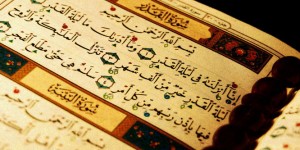 سُورَةُ الْقَدْرِ
بِسْمِ اللَّهِ الرَّحْمَٰنِ الرَّحِيمِ
إِنَّا أَنزَلْنَاهُ فِي لَيْلَةِ الْقَدْرِ وَمَا أَدْرَاكَ مَا لَيْلَةُ
الْقَدْرِ لَيْلَةُ الْقَدْرِ خَيْرٌ مِّنْ أَلْفِ شَهْرٍ تَنَزَّلُ الْمَلَائِكَةُ وَالرُّوحُ
فِيهَا بِإِذْنِ رَبِّهِم مِّن كُلِّ أَمْرٍ سَلَامٌ هِيَ حَتَّىٰ مَطْلَعِ الْفَجْرِ
سُورَةُ الْبَيِّنَةِ
بِسْمِ اللَّهِ الرَّحْمَٰنِ الرَّحِيمِ